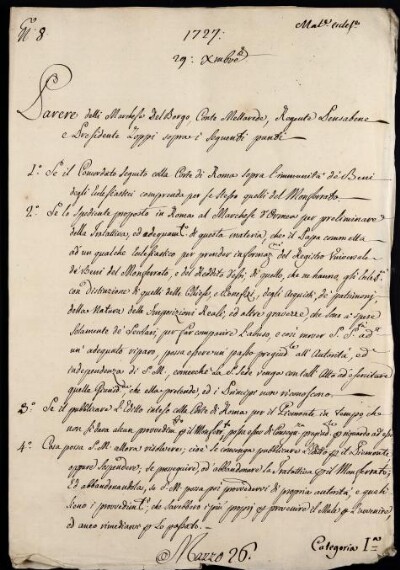 N.° 8
1727:
Mat.e eccles.e
29: Xmbre
Parere delli Marchese Del Borgo, Conte Mellarede, Regente Pensabene
e Presidente Zoppi sopra i seguenti punti
1.° Se il Concordato seguito colla Corte di Roma sopra l'immunità de Beni
degli Ecclesiastici comprenda per se stesso quelli del Monferrato.
2.° Se lo Spediente proposto in Roma al Marchese d'Ormea per preliminare
della Trattativa, ed adequam.to di questa materia, che il Papa commetta
ad un qualche Ecclesiastico per prender informaz.ni del Registro Universale
de Beni del Monferrato, e del Reddito d'essi, di quello, che ne hanno gli Eccl.ci
con distinzione di quelli delle Chiese, e Benefizj, degli Acquisti, de patrimonj
della Natura delle Imposizioni Reali, ed altre gravezze che sono a spese
solamente de Secolari, per far comparire l'abuso, e così mover S. S.tà ad
un adequato riparo, possa essere un passo pregiud.le all'Autorità, ed
independenza di S. M., comeche la S. Sede venga con tall'Atto ad esercitare
quella Giurisd.ne che ella pretende, ed i Principi non riconoscono.
3.° Se il pubblicare l'Editto inteso colla Corte di Roma per il Piemonte in tempo che
non si dava alcun provvedim.to per il Monferr.to possa essere di pregiud.o riguardo ad esso
4.° Cosa possa S. M. allora risolvere; cioè se convenga pubblicare l'Editto per il Piemonte
oppure sospendere; se proseguire, od abbandonare la Trattativa per il Monferrato;
Ed abbandonandola, se S. M. possa poi provvedervi di propria autorità, e quali
siano i provvedim.ti che sarebbero i più proprj per prevenire il Male per l'avvenire
ed anco rimediare per lo passato.
Mazzo 26.
Categoria I.ma